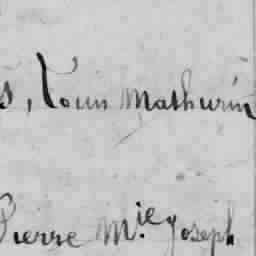 s, Louis Mathurin
Pierre M.ie Joseph